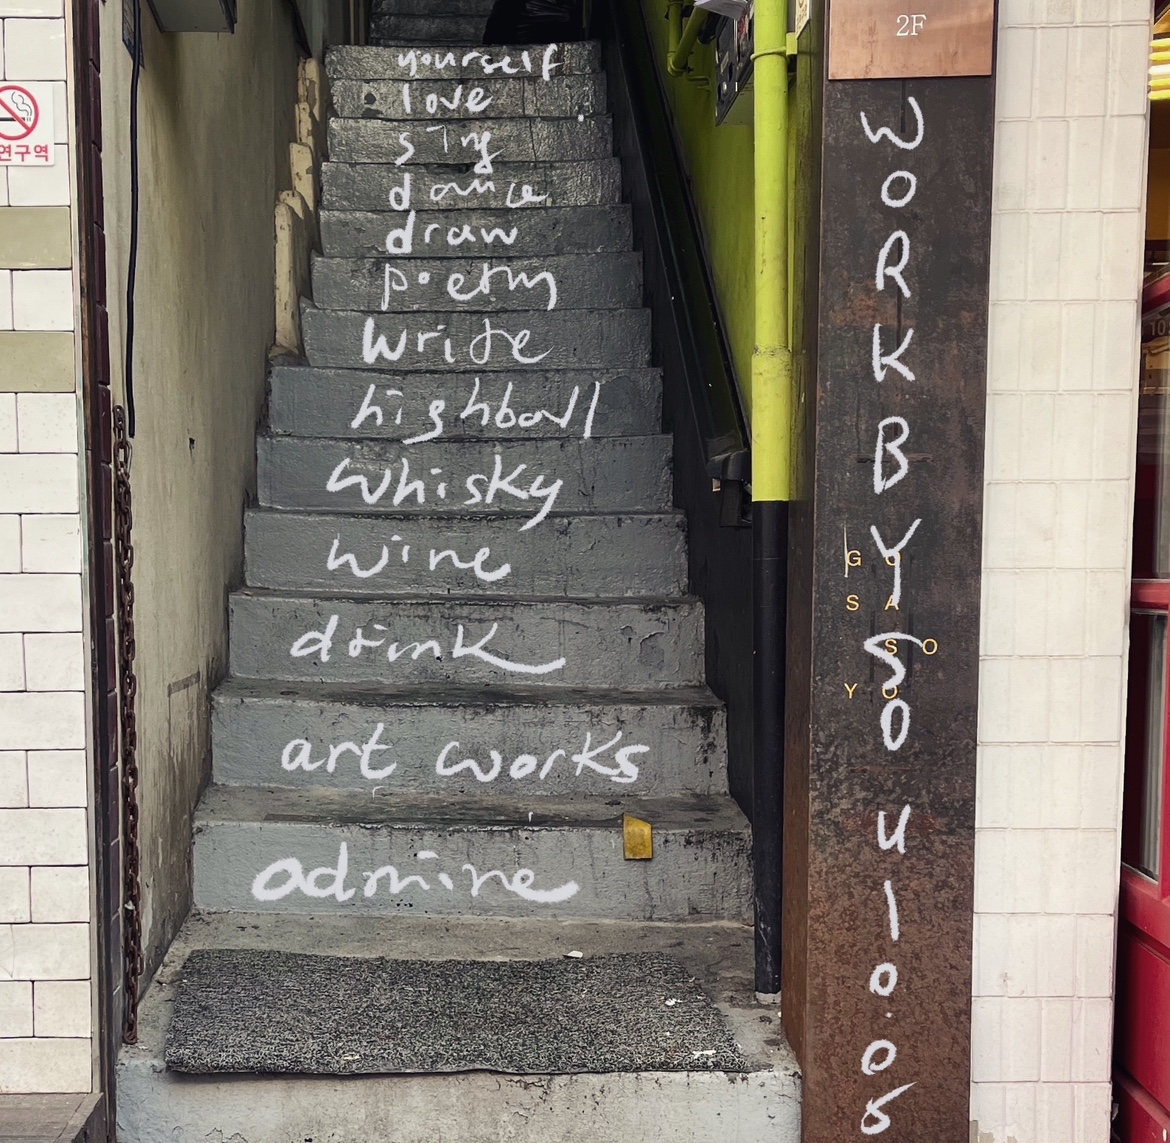 yourself
love
sing
dance
draw
poetry
write
highball
whisky
wine
drink
art works
admine
연구역
2F
WORK BY SOUIO.08
GO
SA
SO
YO